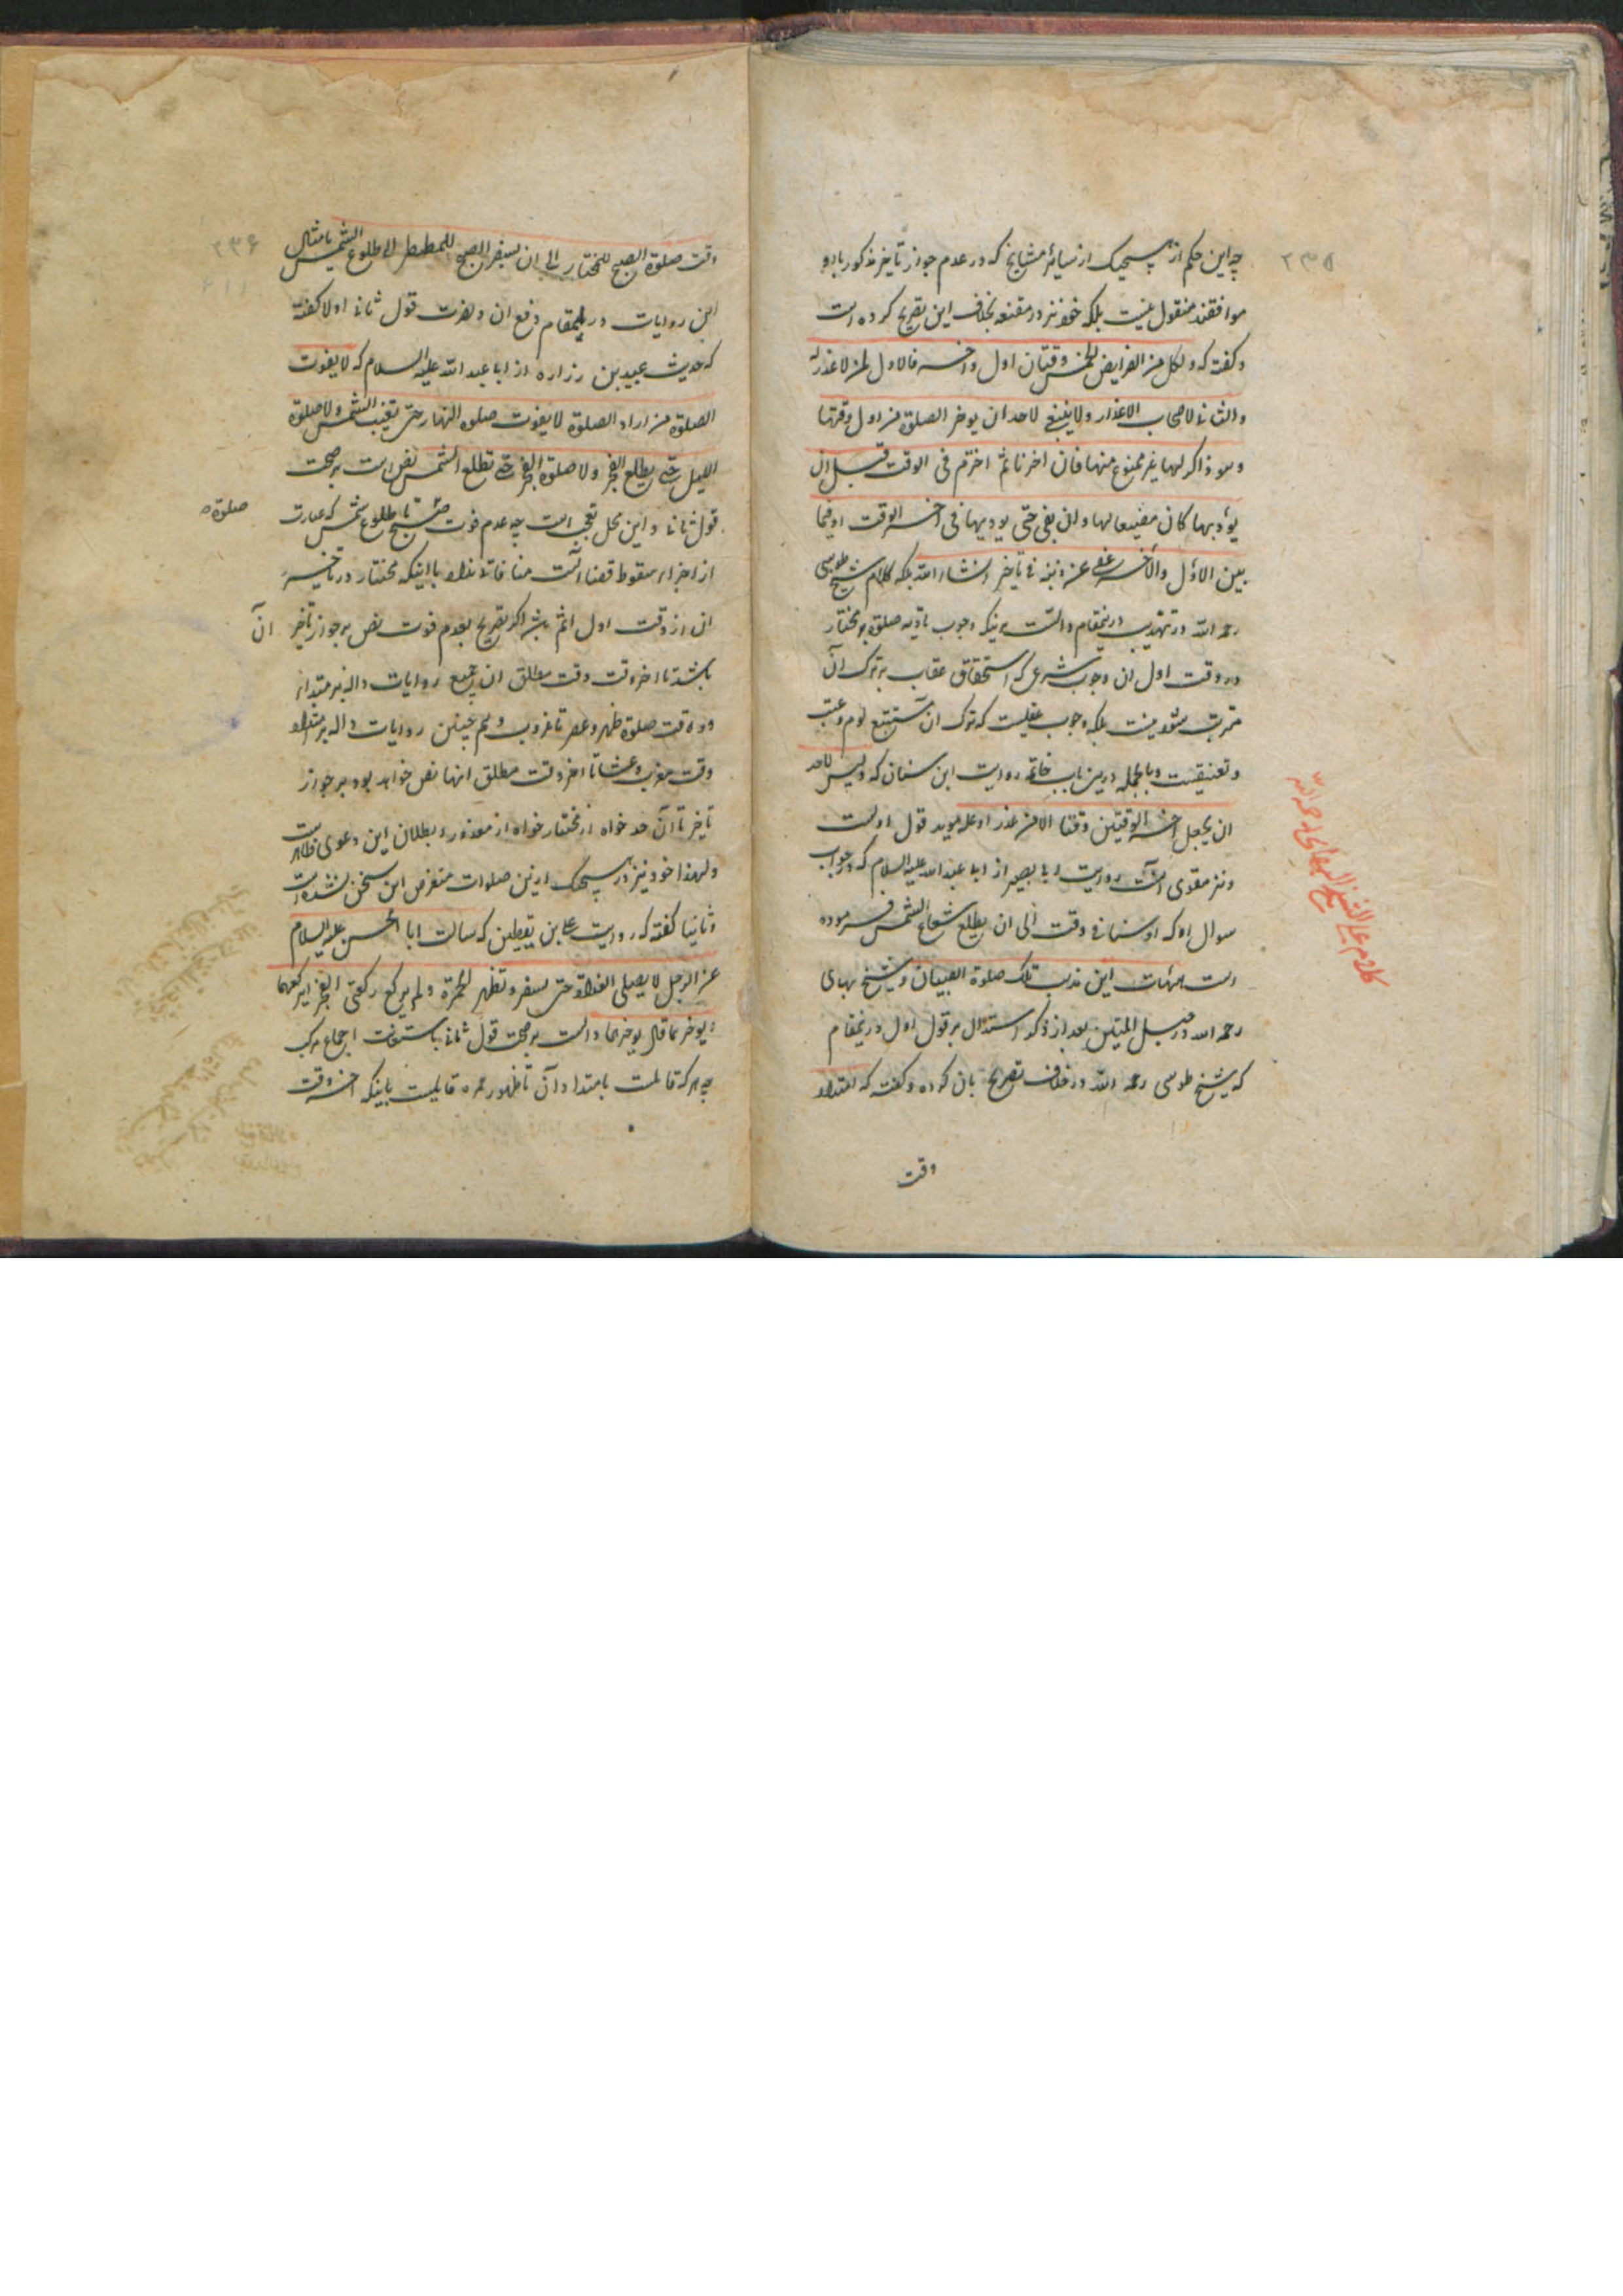 ۲۳۵
چه این حکم از هیچیک از سایر مشایخ که در عدم جواز تأخیر مذکور با او
موافقند منقول نیست بلکه خود نیز در مقنعه بخلاف این تصریح کرده است
و گفته که و لکل من الفرایض الخمس وقتان اول و اخر فالاول لمن لا عذر له
و الثانی لاصحاب الاعذار و لا ینبغی لاحد ان یوخر الصلوة من اول وقتها
و هو ذاکر لها غیر ممنوع منها فان اخرها ثم اخترم فی الوقت قبل ان
یؤدیها کان مضیعا لها و ان بقی حتی یودیها فی اخر الوقت او فیما
بین الاول و الآخر عفی عن ذنبه فی تأخیرها انشاء الله بلکه کلام شیخ طوسی
رحمه الله در تهذیب درینمقام دالست برینکه وجوب تادیه صلوة بر مختار
در وقت اول ان وجوب شرعی که استحقاق عقاب بر ترک آن
مترتب شود نیست بلکه وجوب عقلیست که ترک ان مستتبع لوم و عتب
و تعنیفیست و بالجمله درین باب خاتمه روایت ابن سنان که و لیس لاحد
ان یجعل اخر الوقتین وقتا الا من عذر او علة موید قول اولست
و نیز مقوی آنست روایت ابا بصیر از ابا عبد الله علیه السلام که در جواب
سوال او که اوسنا فی وقت الی ان یطلع شعاع الشمس فرموده
است هیهات این تذهب تلک صلوة الصبیان و شیخ بهای
رحمه الله در حبل المتین بعد از ذکر استدلال بر قول اول درینمقام
که شیخ طوسی رحمه الله در خلاف تصریح بان کرده و گفته که
وقت
کلام علی الشیخ البهائی رحمه الله
۲۳۶
وقت صلوة الصبح للمختار الی ان یسفر الصبح للمضطر الی طلوع الشمس بامثال
این روایات درینمقام دفع ان و نصرت قول ثانی اولا گفته
که حدیث عبید بن زراره از ابا عبد الله علیه السلام که لا یفوت
الصلوة من اراد الصلوة لا یفوت صلوه النهار حتی تغیب الشمس و لا صلوة
اللیل حتی یطلع الفجر و لا صلوة الفجر حتی تطلع الشمس نص است بر صحت
قول ثانی و این محل تعجب است چه عدم فوت صبح تا طلوع شمس که عبارت
صلوة
از اجزاء و سقوط قضا است منافاتی ندارد با اینکه مختار در تأخیر
ان از وقت اول اثم باشد و اگر تصریح بعدم فوت نص بر جواز تأخیر آن
باشد تا اخر وقت مطلق ان جمیع روایات داله بر امتداد
دو وقت صلوة ظهر و عصر تا غروب و هم چنین روایات داله بر امتداد
وقت مغرب و عشا تا اخر وقت مطلق انها نص خواهد بود بر جواز
تاخیر تا آن حد خواه از مختار خواه از معذور و بطلان این دعوی ظاهر است
و لهذا خود نیز در هیچیک ازین صلوات متعرض این سخن نشده است
و ثانیا گفته که روایت علی بن یقطین که سالت ابا الحسن علیه السلام
عن الرجل لا یصلی الغداة حتی یسفر و تظهر الحمرة و لم یرکع رکعتی الفجر ایرکعهما
او یوخرهما قال یوخرهما دالست بر صحت قول ثانی باستعانت اجماع مرکب
چه هر که قائلست بامتداد آن تا ظهور حمره قایلست باینکه اخر وقت